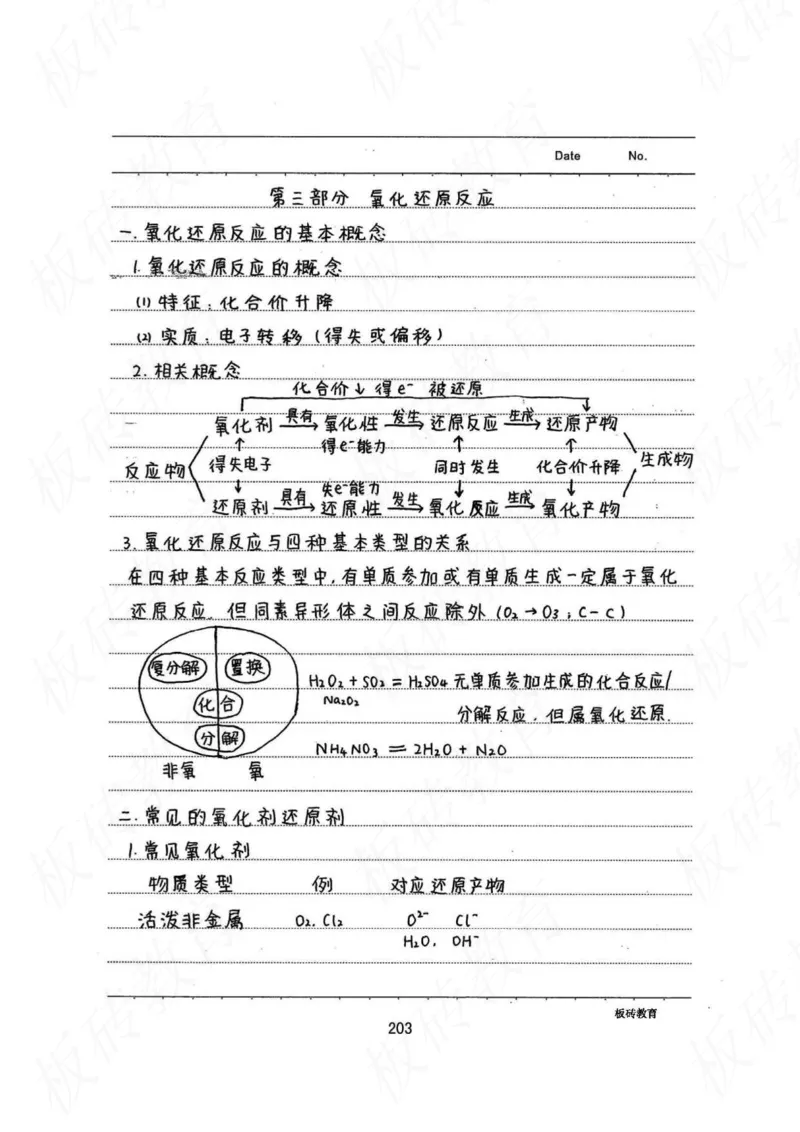 Date No.
第三部分 氧化还原反应
一.氧化还原反应的基本概念
1.氧化还原反应的概念
(1) 特征:化合价升降
(2) 实质:电子转移(得失或偏移)
2.相关概念
化合价↓ 得e⁻ 被还原
氧化剂 具有→ 氧化性 发生→ 还原反应 生成→ 还原产物
↑ 得e⁻能力 ↑ ↑
反应物 得失电子 同时发生 化合价升降 生成物
↓ 失e⁻能力 ↓ ↓
还原剂 具有→ 还原性 发生→ 氧化反应 生成→ 氧化产物
3.氧化还原反应与四种基本类型的关系
在四种基本反应类型中,有单质参加或有单质生成一定属于氧化
还原反应.但同素异形体之间反应除外(O₂→O₃;C-C)
复分解 置换
H₂O₂+SO₂=H₂SO₄ 无单质参加生成的化合反应/
化合 Na₂O₂
分解反应,但属氧化还原.
分解
NH₄NO₃=2H₂O+N₂O
非氧 氧
二.常见的氧化剂还原剂
1.常见氧化剂
物质类型 例 对应还原产物
活泼非金属 O₂.Cl₂ O²⁻ Cl⁻
H₂O. OH⁻
板砖教育
203